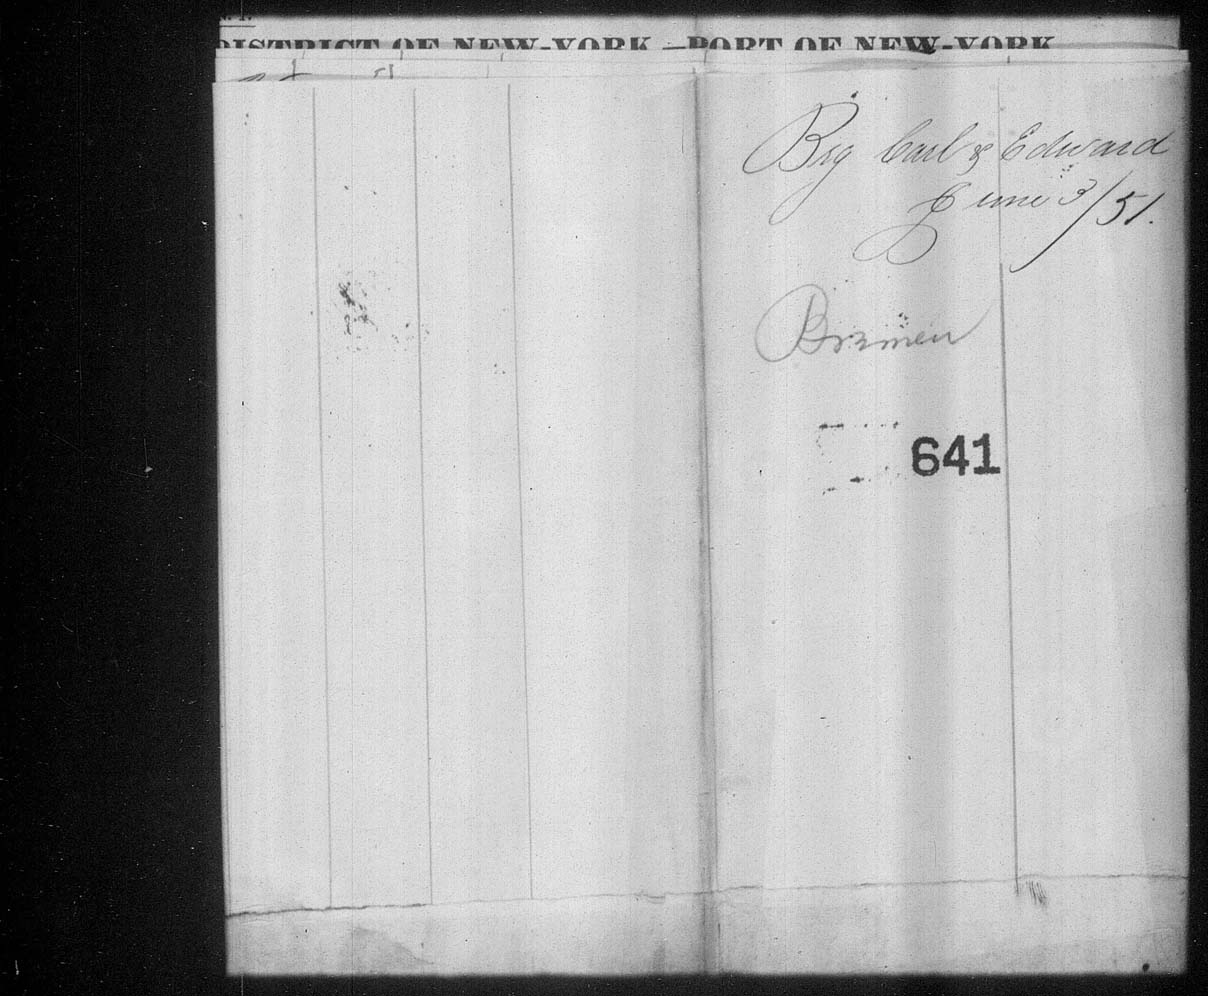 DISTRICT OF NEW-YORK—PORT OF NEW-YORK
Brg Carl & Edward
June 3/51.
Bremen
641